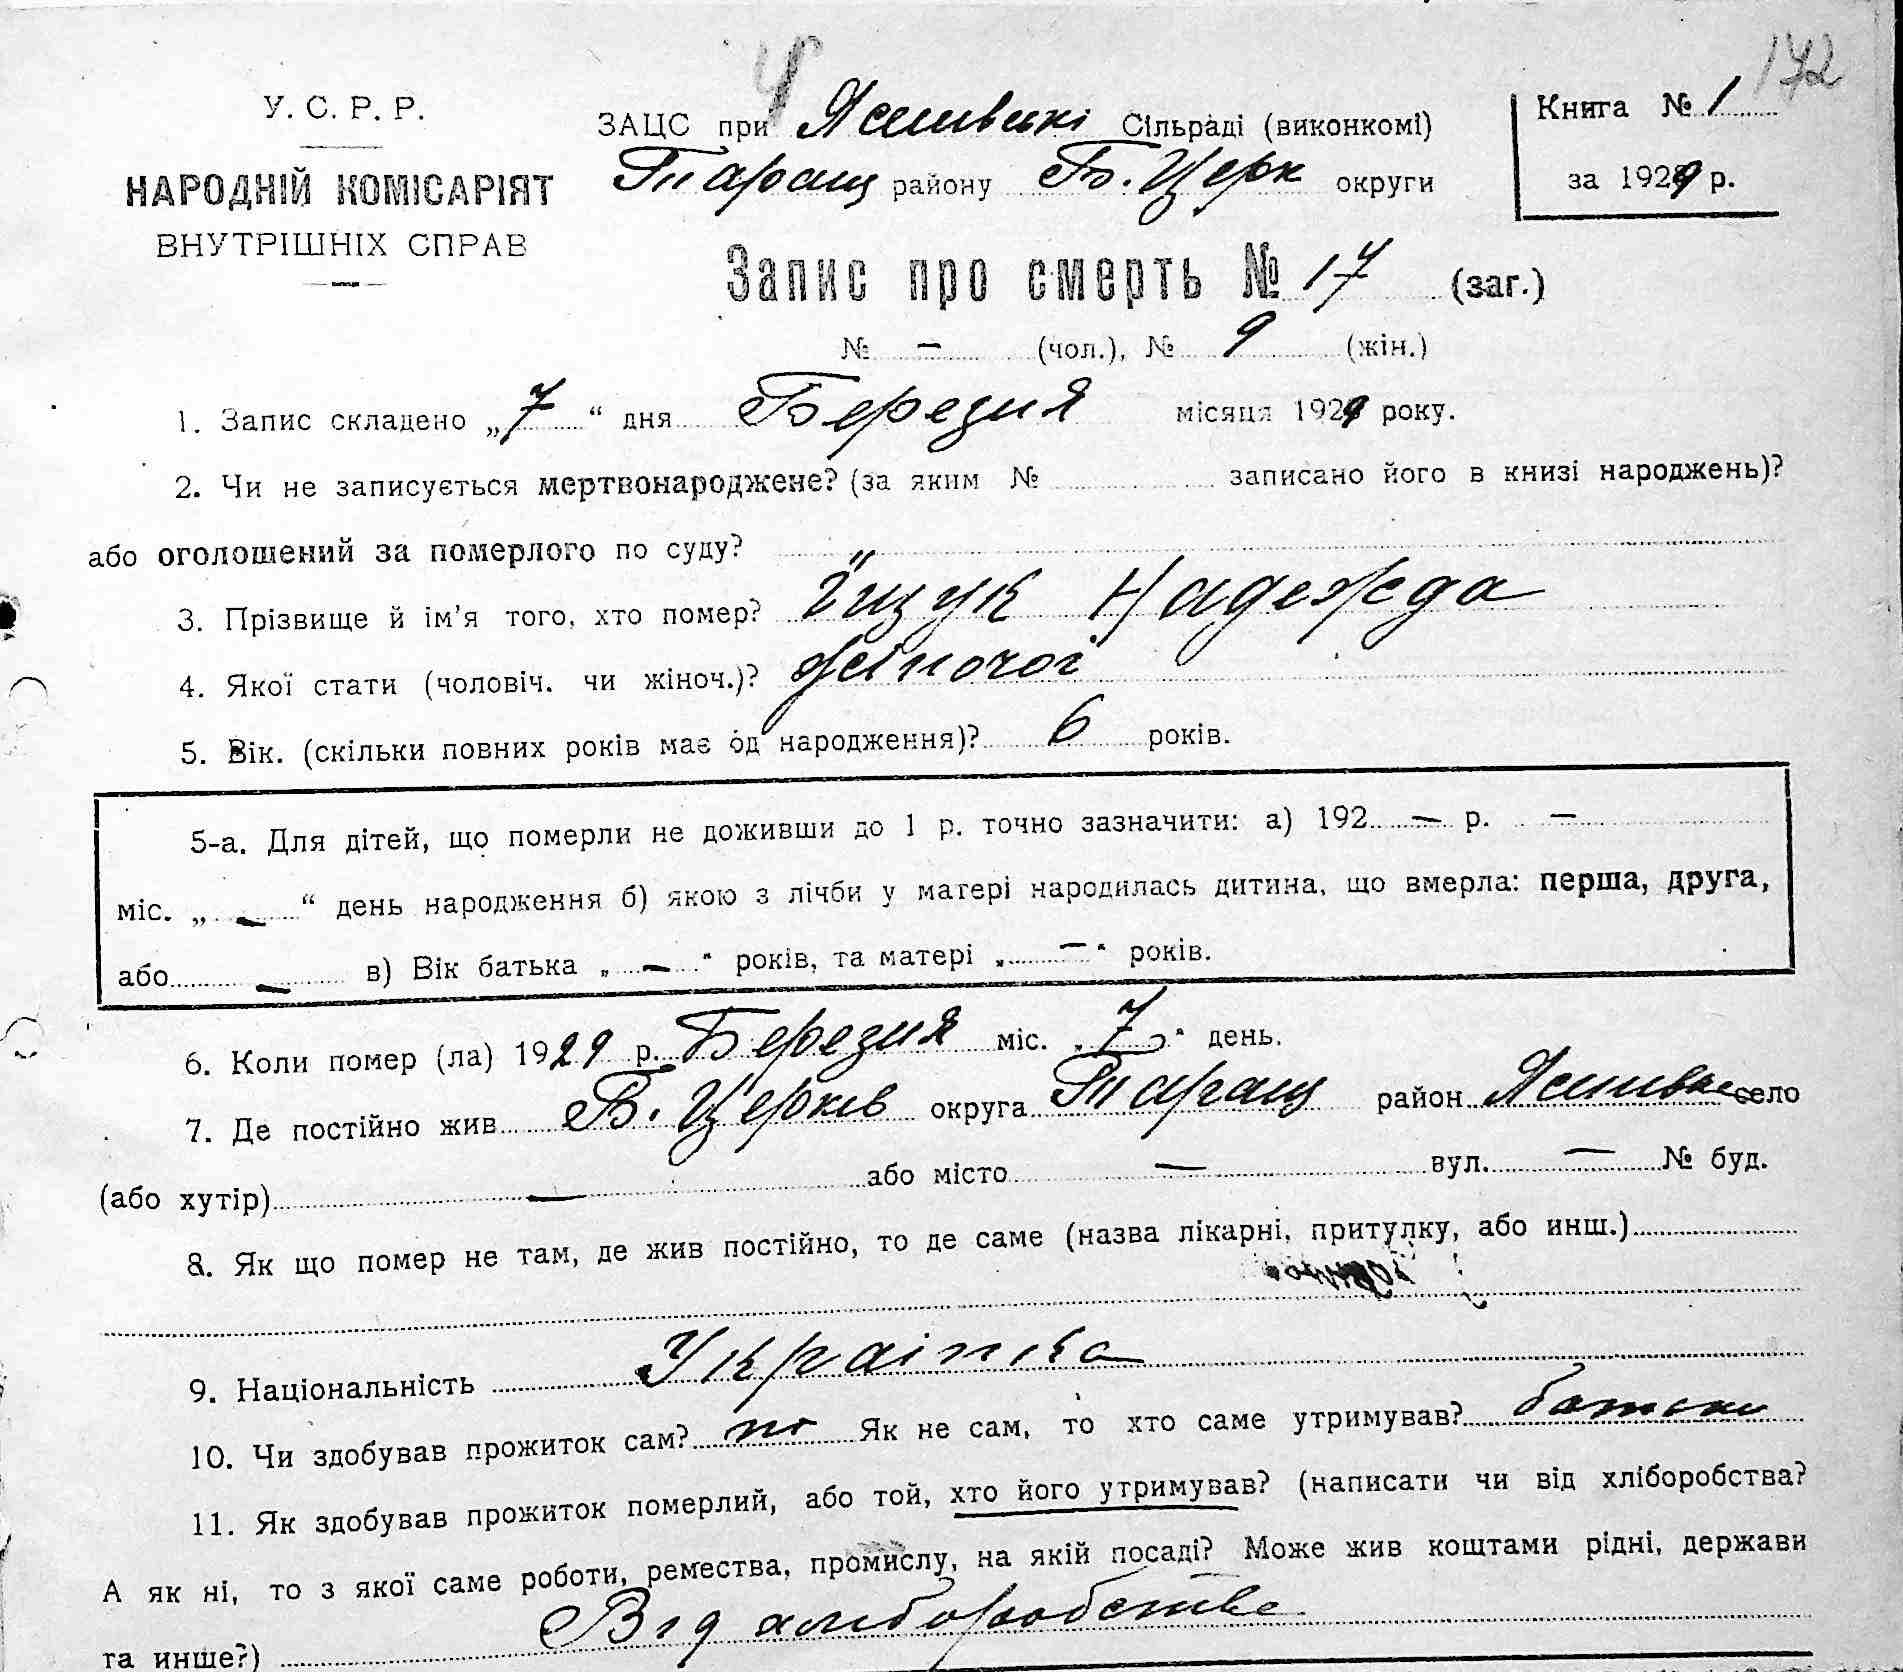 172
У. С. Р. Р.
НАРОДНІЙ КОМІСАРІЯТ
ВНУТРІШНІХ СПРАВ
ЗАЦС при Сільраді (виконкомі)
Таращ району Б. Церк округи
Книга № 1
за 1929 р.
Запис про смерть № 17 (заг.)
№ — (чол.), № 9 (жін.)
1. Запис складено „7“ дня Березня місяця 1929 року.
2. Чи не записується мертвонароджене? (за яким № записано його в книзі народжень)?
або оголошений за померлого по суду?
3. Прізвище й ім’я того, хто помер? Надежда
4. Якої стати (чоловіч. чи жіноч.)? жіночоі
5. Вік. (скільки повних років має од народження)? 6 років.
5-а. Для дітей, що померли не доживши до 1 р. точно зазначити: а) 192 — р. —
міс. „ — “ день народження б) якою з лічби у матері народилась дитина, що вмерла: перша, друга,
або — в) Вік батька „ — “ років, та матері „ — “ років.
6. Коли помер (ла) 1929 р. Березня міс. „7“ день.
7. Де постійно жив Б. Церків округа Таращ район село
(або хутір) — або місто — вул. — № буд.
8. Як що помер не там, де жив постійно, то де саме (назва лікарні, притулку, або инш.)
9. Національність Украінка
10. Чи здобував прожиток сам? ні Як не сам, то хто саме утримував? батьки
11. Як здобував прожиток померлий, або той, хто його утримував? (написати чи від хліборобства?
А як ні, то з якої саме роботи, ремества, промислу, на якій посаді? Може жив коштами рідні, держави
та инше?) Від хліборобства